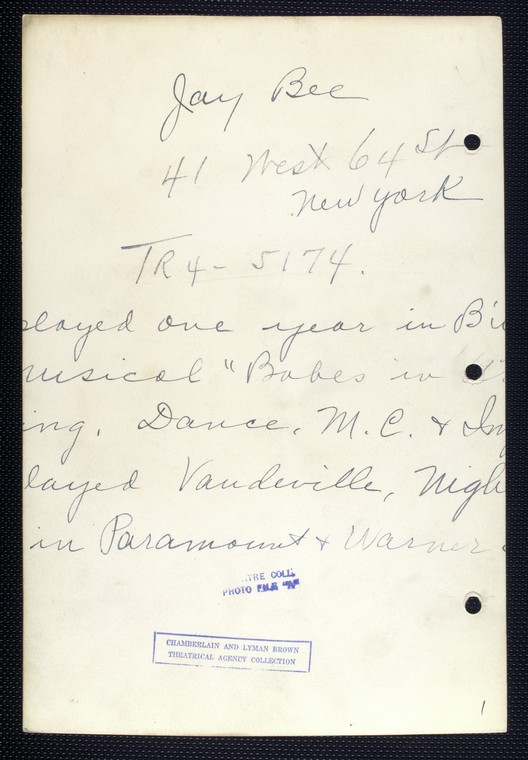 Jay Bee
41 West 64 St
New York
TR4-5174.
played one year in B'
musical "Babes in
ing, Dance, M.C. &
layed Vaudeville, Nigh
in Paramount & Warner
TRE COLL.
PHOTO FILE "A"
CHAMBERLAIN AND LYMAN BROWN
THEATRICAL AGENCY COLLECTION
1